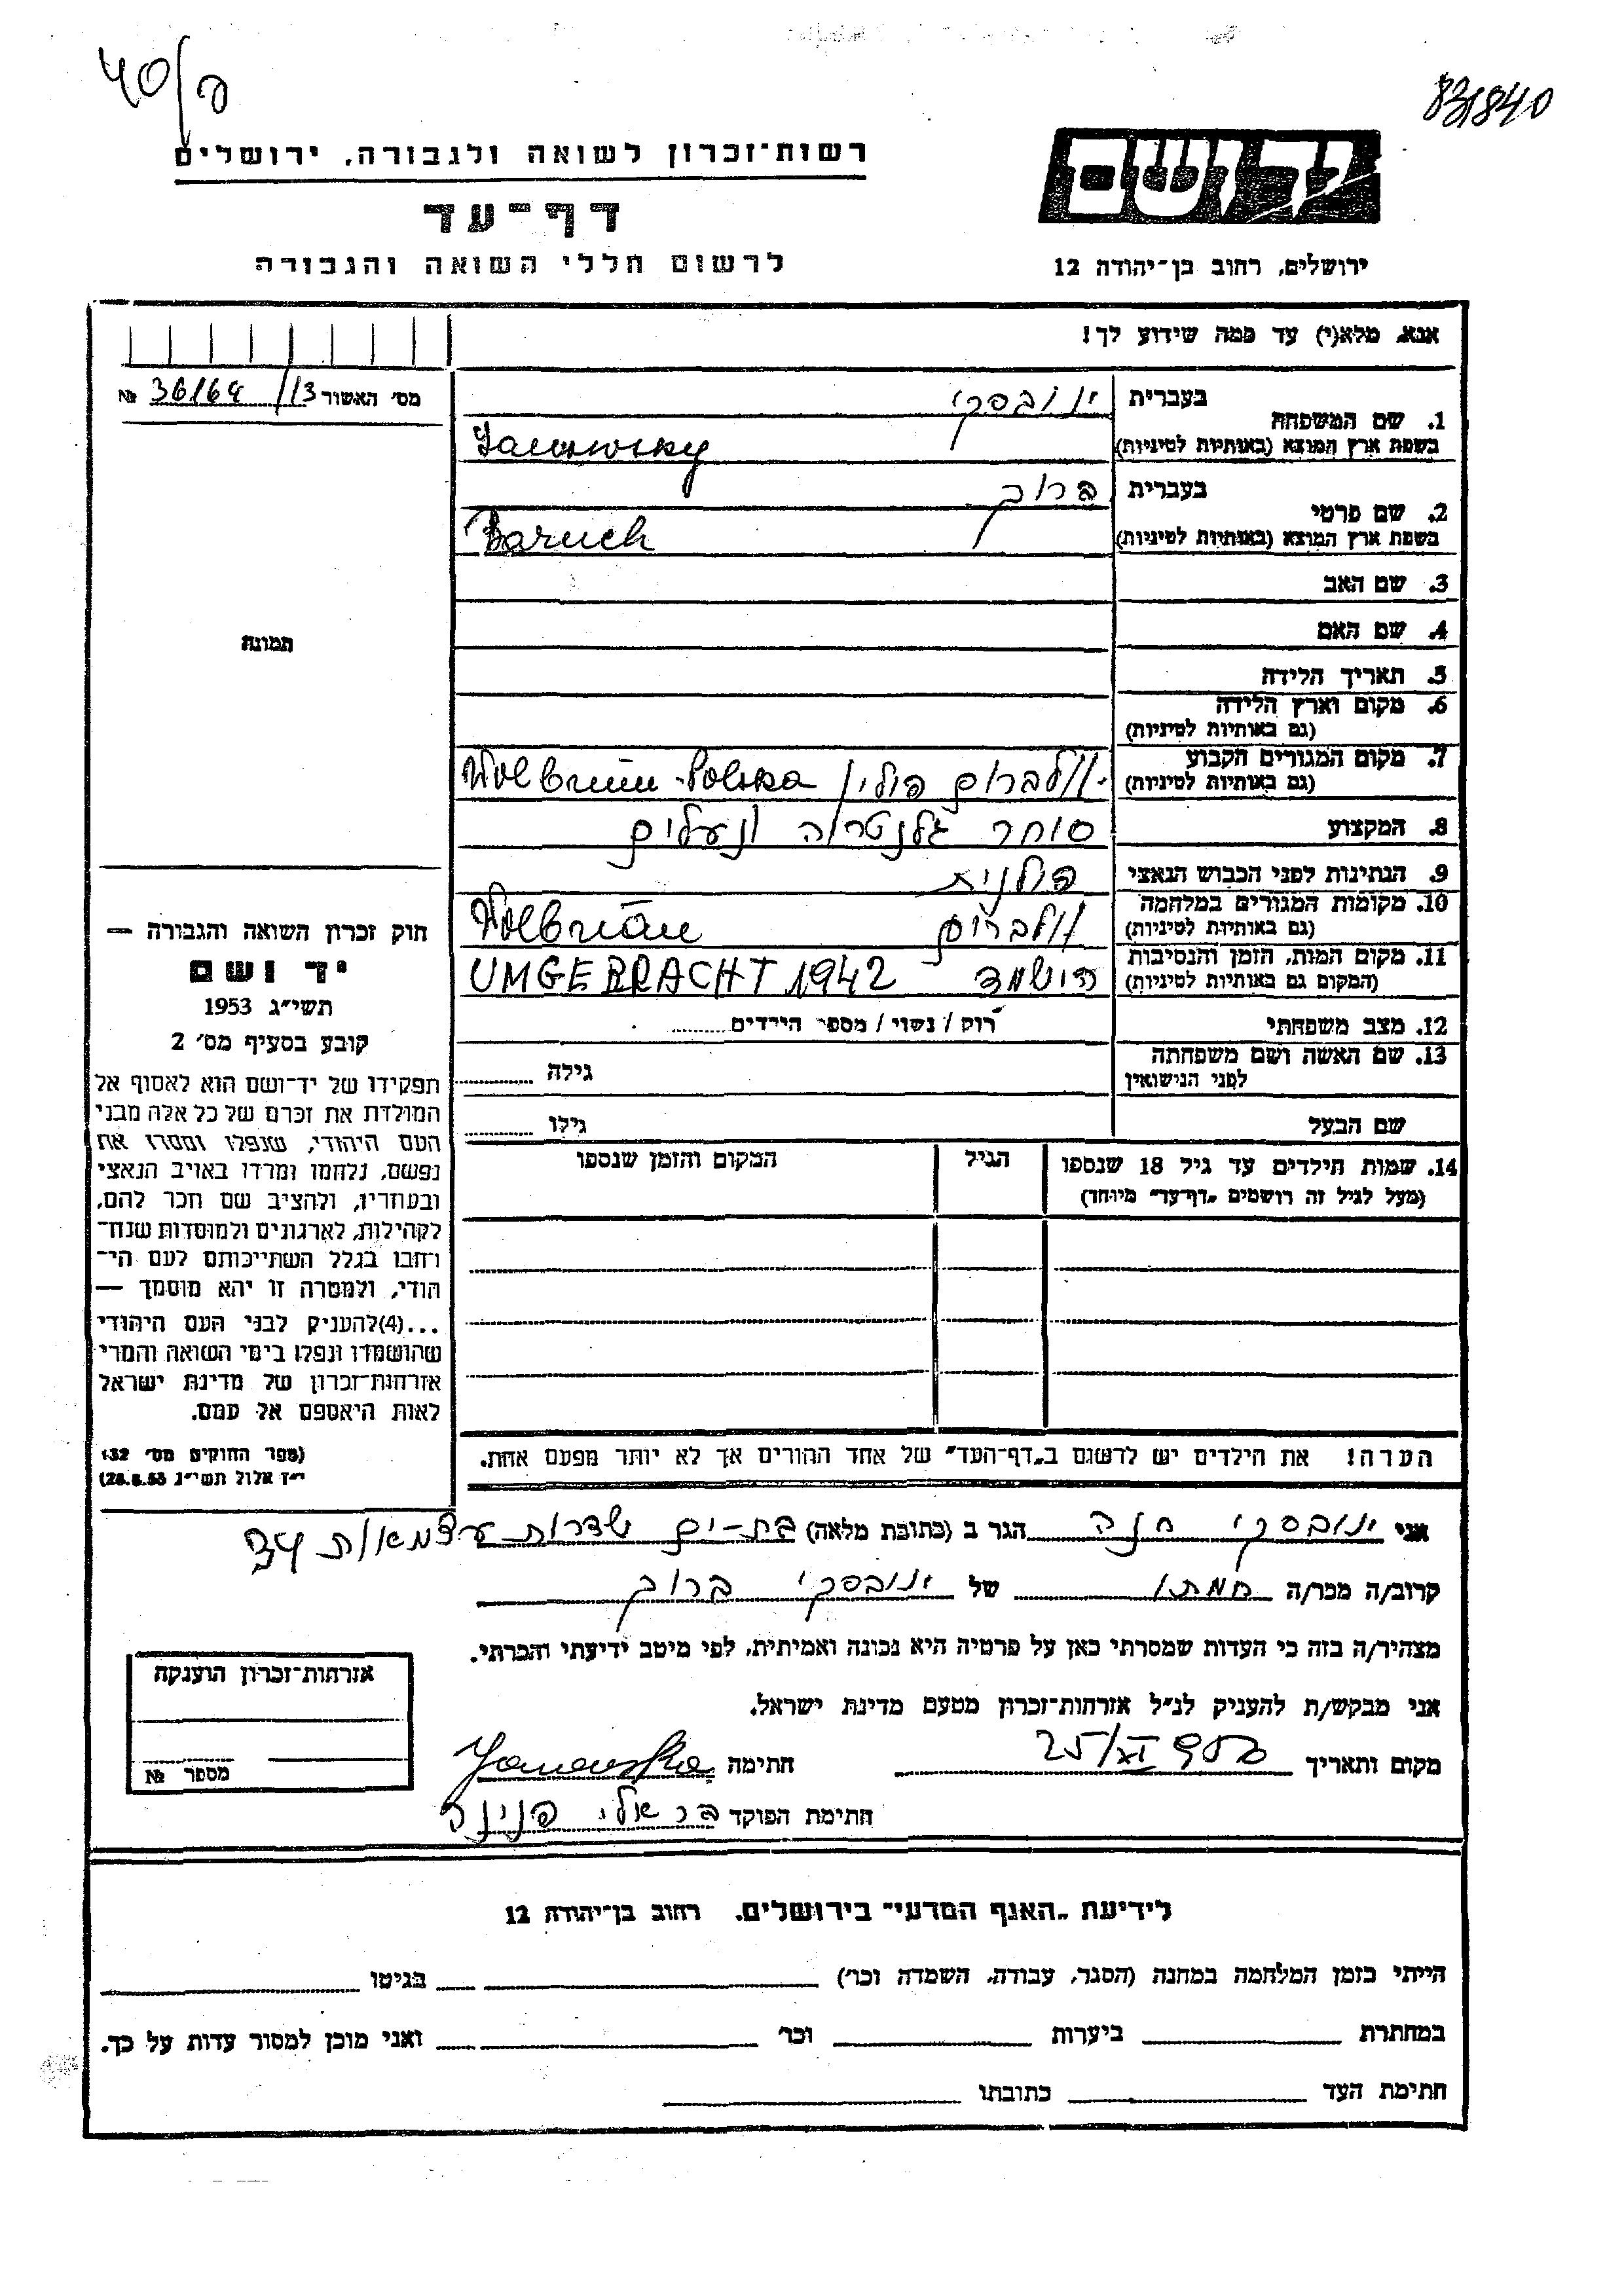 40/ס
831840
יד ושם
רשות־זכרון לשואה ולגבורה, ירושלים
דף־עד
לרשום חללי השואה והגבורה
ירושלים, רחוב בן־יהודה 12
אנא, מלא(י) עד כמה שידוע לך!
מס׳ האשור 36164/13 №
1. שם המשפחה
בעברית ינובסקי
בשפת ארץ המוצא (באותיות לטיניות) Janowsky
2. שם פרטי
בעברית ברוך
בשפת ארץ המוצא (באותיות לטיניות) Baruch
3. שם האב
4. שם האם
5. תאריך הלידה
6. מקום וארץ הלידה
(גם באותיות לטיניות)
7. מקום המגורים הקבוע
(גם באותיות לטיניות) וולברום פולין Wolbrum - Polska
8. המקצוע סוחר גלנטריה ונעלים
9. הנתינות לפני הכבוש הנאצי פולנית
10. מקומות המגורים במלחמה
(גם באותיות לטיניות) וולברום Wolbrum
11. מקום המות, הזמן והנסיבות
(המקום גם באותיות לטיניות) הושמד UMGEBRACHT 1942
12. מצב משפחתי רוק / נשוי / מספר הילדים
13. שם האשה ושם משפחתה
לפני הנישואין גילה
שם הבעל גילו
14. שמות הילדים עד גיל 18 שנספו
(מעל לגיל זה רושמים „דף־עד״ מיוחד)
הגיל
המקום והזמן שנספו
הערה! את הילדים יש לרשום ב„דף־העד״ של אחד ההורים אך לא יותר מפעם אחת.
תמונה
חוק זכרון השואה והגבורה —
יד ושם
תשי״ג 1953
קובע בסעיף מס׳ 2
תפקידו של יד־ושם הוא לאסוף אל
המולדת את זכרם של כל אלה מבני
העם היהודי, שנפלו ומסרו את
נפשם, נלחמו ומרדו באויב הנאצי
ובעוזריו, ולהציב שם וזכר להם,
לקהילות, לארגונים ולמוסדות שנח־
רחבו בגלל השתייכותם לעם הי־
הודי, ולמטרה זו יהא מוסמך —
...(4)להעניק לבני העם היהודי
שהושמדו ונפלו בימי השואה והמרי
אזרחות־זכרון של מדינת ישראל
לאות היאספם אל עמם.
(ספר החוקים מס׳ 132
י״ז אלול תשי״ג 28.8.53)
אני ינובסקי חנה הגר ב (כתובת מלאה) בת-ים שדרות עצמאות 34
קרוב/ה מכר/ה חמתו של ינובסקי ברוך
מצהיר/ה בזה כי העדות שמסרתי כאן על פרטיה היא נכונה ואמיתית, לפי מיטב ידיעתי והכרתי.
אני מבקש/ת להעניק לנ״ל אזרחות־זכרון מטעם מדינת ישראל.
מקום ותאריך 25/XI חתימה Janowska
חתימת הפוקד בר אלי פנינה
אזרחות־זכרון הוענקה
מספר №
לידיעת „האגף המדעי״ בירושלים. רחוב בן־יהודה 12
הייתי בזמן המלחמה במחנה (הסגר, עבודה, השמדה וכו׳) בגיטו
במחתרת ביערות וכו׳ ואני מוכן למסור עדות על כך.
חתימת העד כתובתו